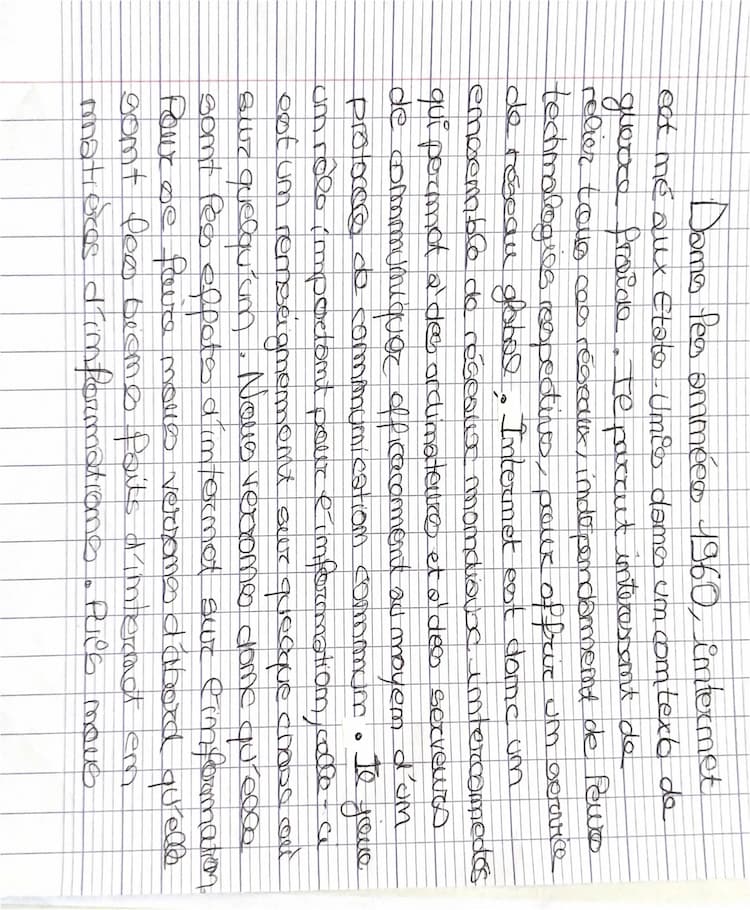 Dans les années 1960, internet
est né aux Etats-Unis dans un contexte de
guerre froide. Il parrut interessant de
relier tous ces réseaux, indépendamment de leurs
technologies respectives, pour offrir un service
de réseau global. Internet est donc un
ensemble de réseaux mondiaux interconnectés
qui permet à des ordinateurs et à des serveurs
de communiquer efficacement au moyen d'un
protocole de communication commun. Il joue
un rôle important pour l'information, celle-ci
est un renseignement sur quelque chose ou
sur quelqu'un. Nous verrons donc quelle
sont les effets d'internet sur l'information
Pour se faire nous verrons d'abord quelle
sont les biens faits d'internet en
matières d'informations. Puis nous